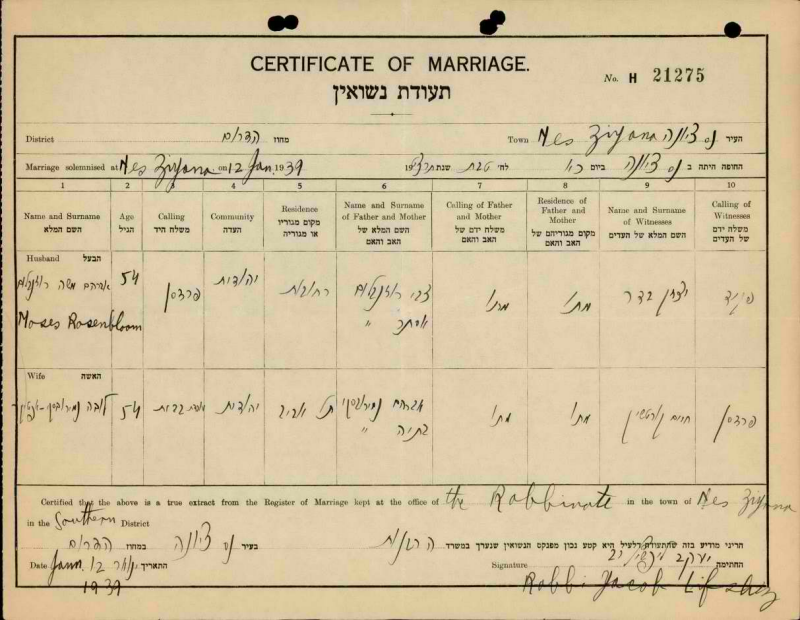 CERTIFICATE OF MARRIAGE.
No. H 21275
תעודת נשואין
District הדרום מחוז Town Nes Ziyona נס ציונה העיר
Marriage solemnised at Nes Ziyona on 12 Jan. 1939 לח' טבת שנת תרצ"ט ביום כ"א החופה היתה ב נס ציונה
1 2 3 4 5 6 7 8 9 10
Name and Surname
השם המלא
Age
הגיל
Calling
משלח היד
Community
העדה
Residence
מקום מגוריו
או מגוריה
Name and Surname
of Father and Mother
השם המלא של
האב והאם
Calling of Father
and Mother
משלח ידם של
האב והאם
Residence of
Father and
Mother
מקום מגוריהם של
האב והאם
Name and Surname
of Witnesses
השם המלא של העדים
Calling of
Witnesses
משלח ידם
של העדים
Husband הבעל
אברהם משה רוזנבלום
Moses Rosenbloom
54
פרדסן
יהודית
רחובות
צבי רוזנבלום
אסתר "
מתו
מתו
יצחק בדר
פקיד
Wife האשה
54
יהודית
תל אביב
אברהם
בתיה "
מתו
מתו
חיים
פרדסן
Certified that the above is a true extract from the Register of Marriage kept at the office of the Rabbinate in the town of Nes Ziyona
in the Southern District
הריני מודיע בזה שהתעודה דלעיל היא קטע נכון מפנקס הנשואין שנערך במשרד הרבנות
בעיר נס ציונה במחוז הדרום
Date Jann. 12 1939 ינואר 12 התאריך Signature יעקב ליפשיץ החתימה
Rabbi Jacob Lifshez